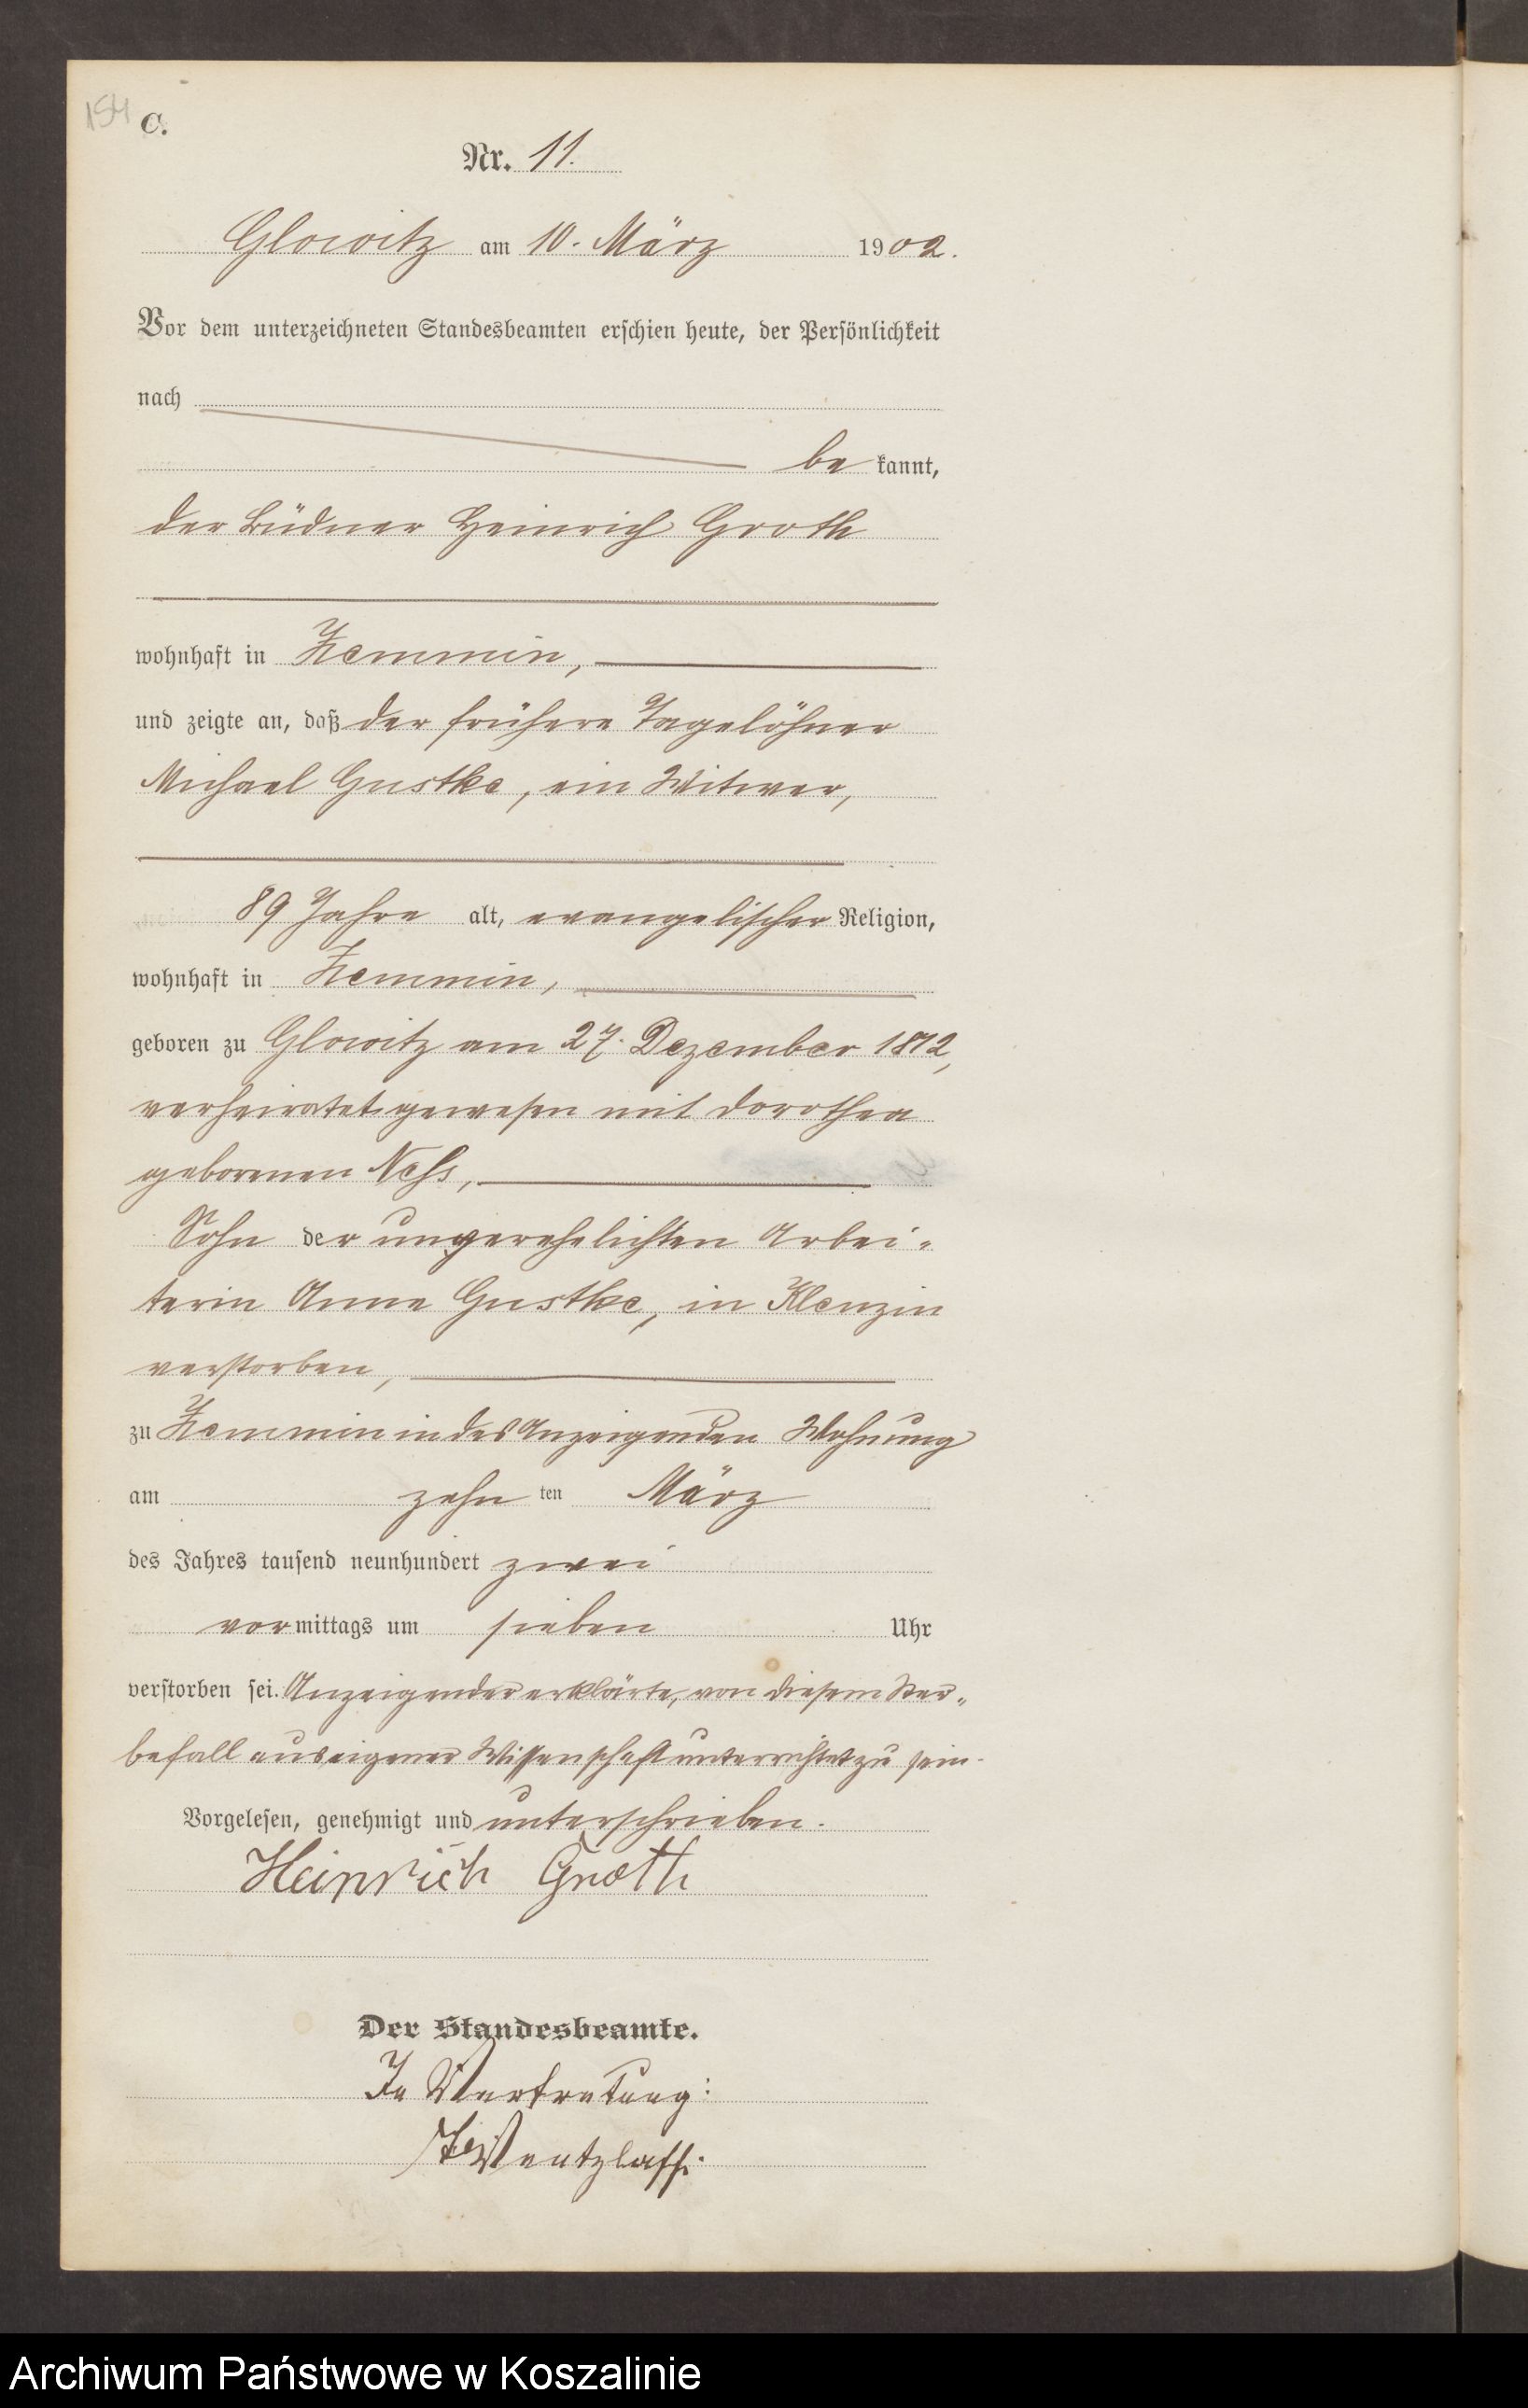 154 C.
Nr. 11.
Glowitz am 10. März 1902.
Vor dem unterzeichneten Standesbeamten erschien heute, der Persönlichkeit
nach
be kannt,
der Büdner Heinrich Groth
wohnhaft in Zemmin,
und zeigte an, daß der frühere Tagelöhner
Michael Gustke, ein Witwer,
89 Jahre alt, evangelischer Religion,
wohnhaft in Zemmin,
geboren zu Glowitz am 27. Dezember 1812,
verheiratet gewesen mit Dorothea
geborenen Ness,
Sohn der unverehelichten Arbei-
terin Anna Gustke, in Klenzin
verstorben,
zu Zemmin in des Anzeigenden Wohnung
am zehn ten März
des Jahres tausend neunhundert zwei
vor mittags um sieben Uhr
verstorben sei. Anzeigender erklärte, von diesem Ster-
befall aus eigener Wissenschaft unterrichtet zu sein.
Vorgelesen, genehmigt und unterschrieben.
Heinrich Groth
Der Standesbeamte.
In Vertretung:
Wentzlaff.
Archiwum Państwowe w Koszalinie